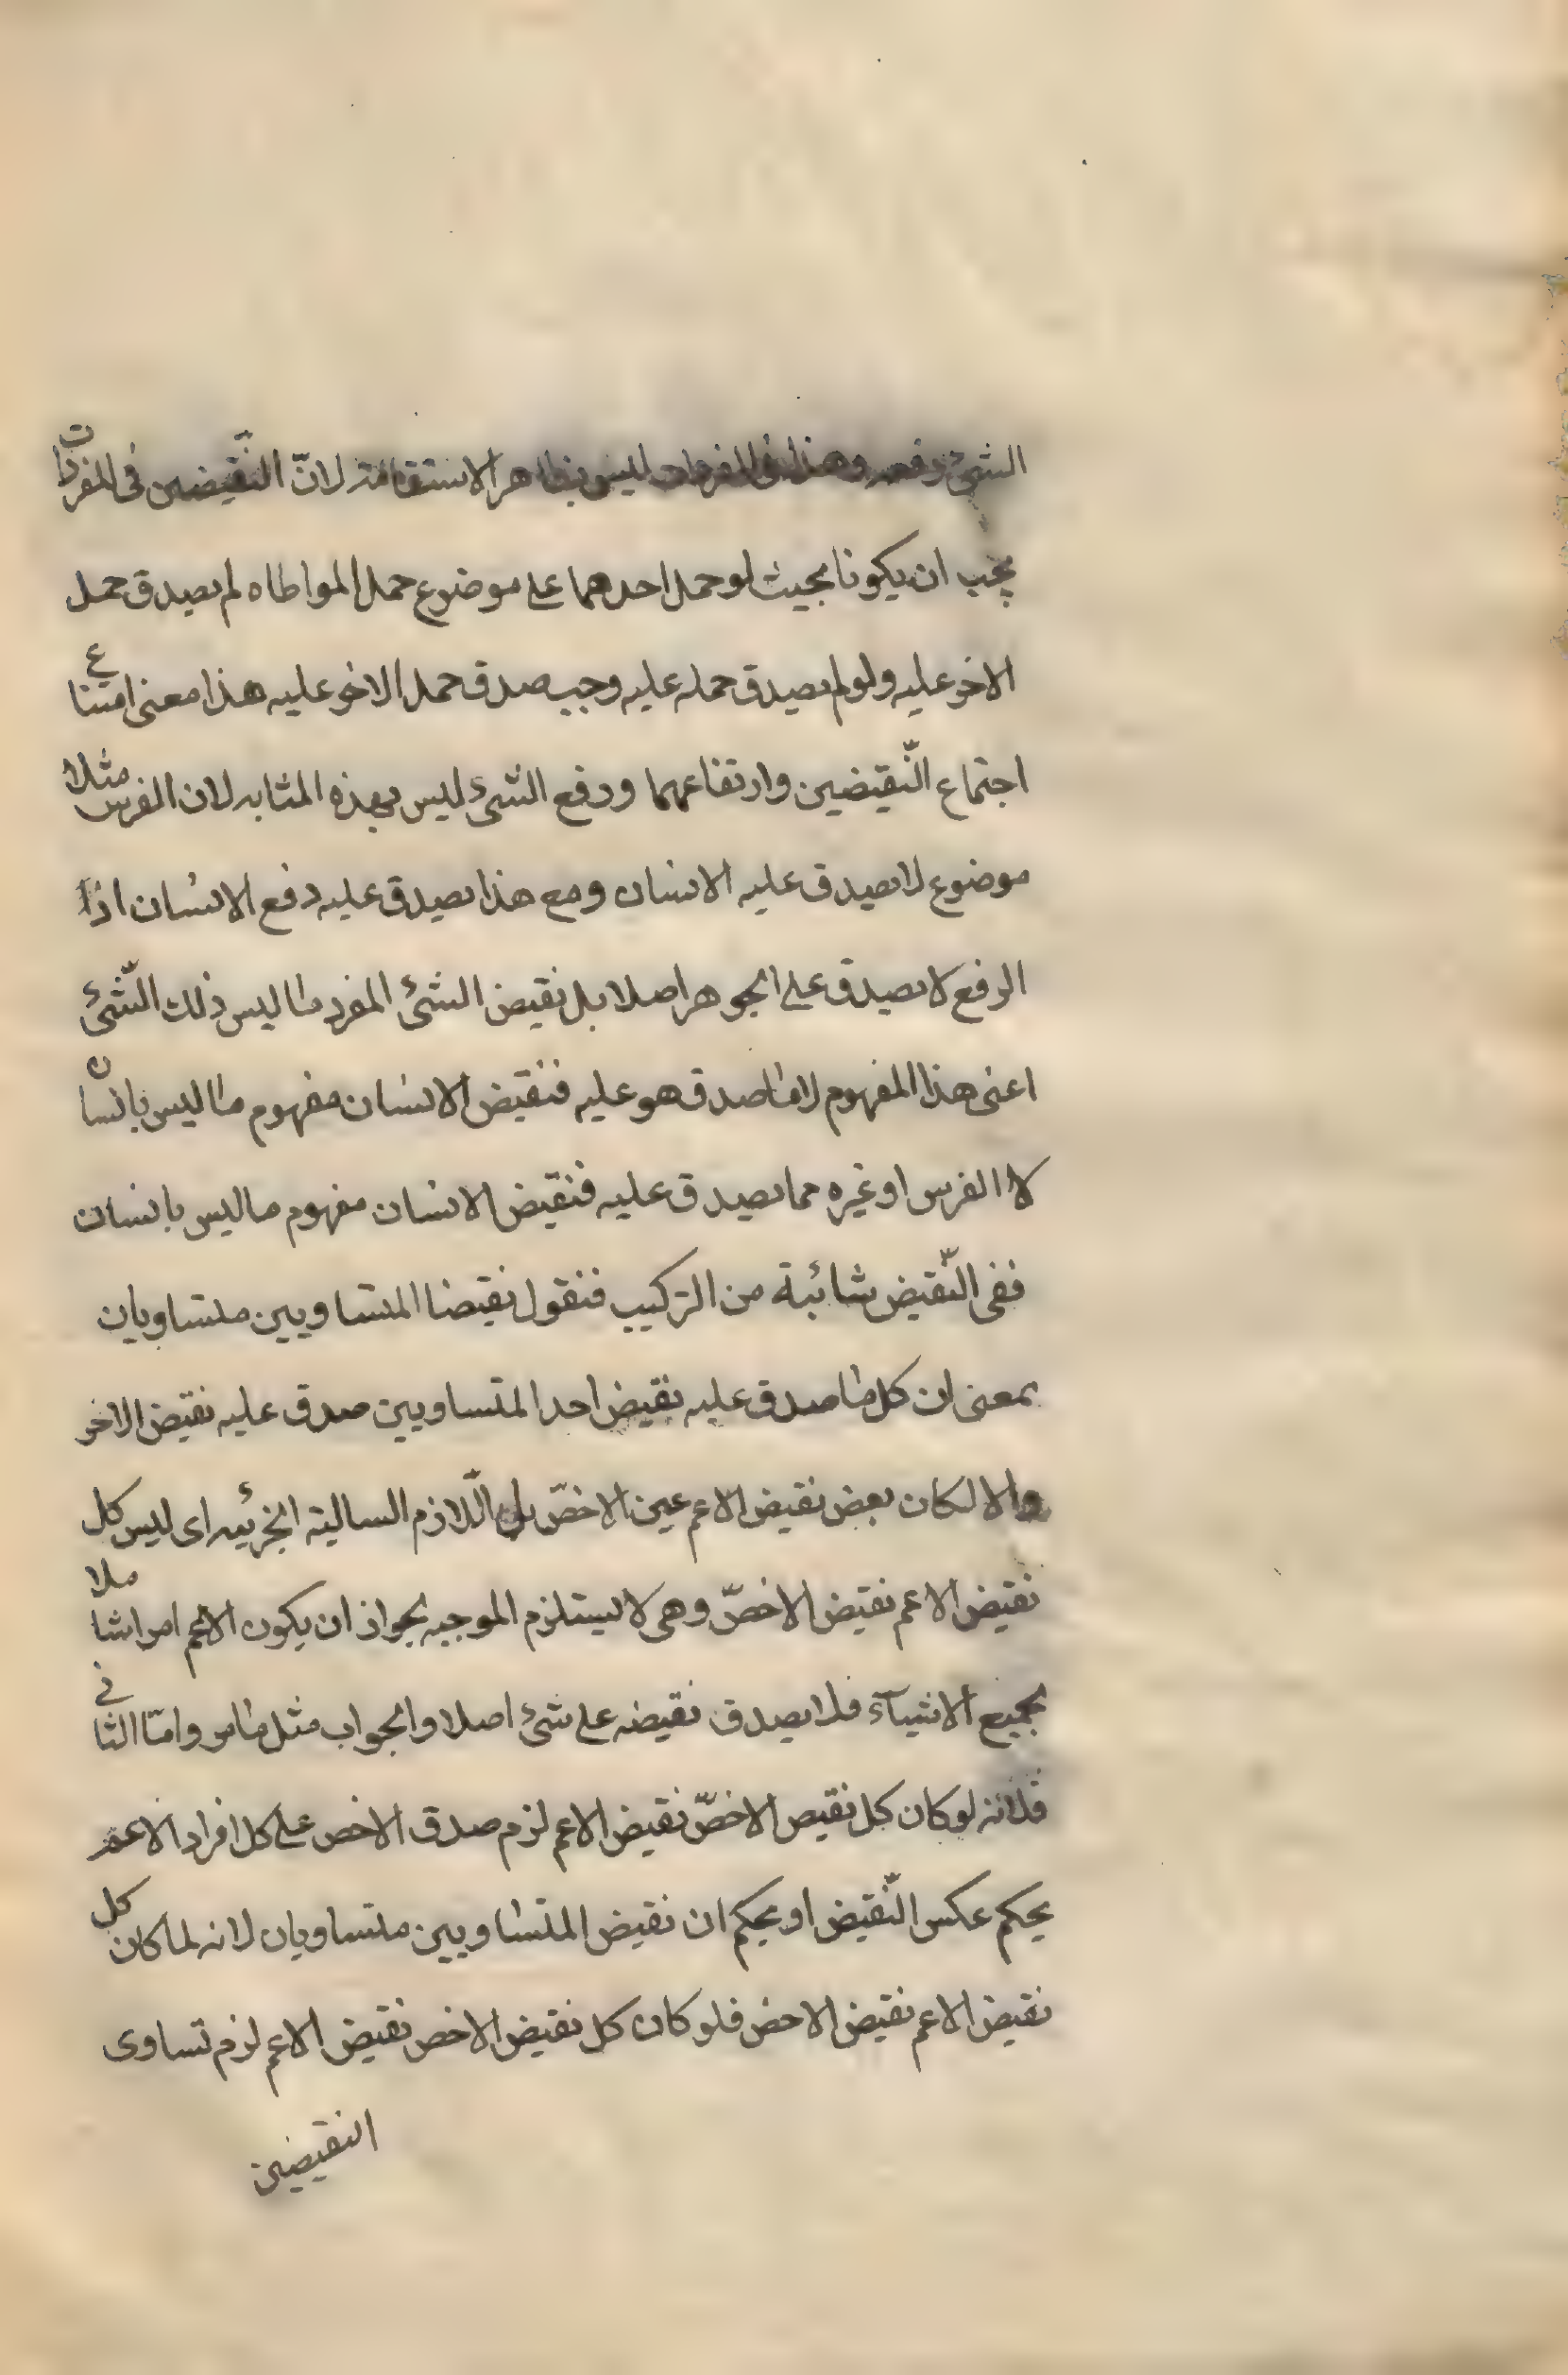 الشئ رفعه وهذا فى المفردات ليس بظاهر الاستقامة لانّ النّقيضين فى المفردات
يجب ان يكونا بحيث لو حمل احدهما على موضوع حمل المواطاه لم يصدق حمل
الاخر عليه ولو لم يصدق حمله عليه وجب صدق حمل الاخر عليه هذا معنى امتناع
اجتماع النّقيضين وارتفاعهما ورفع الشئ ليس بهذه المثابه لان الفرس مثلا
موضوع لا يصدق عليه الانسان ومع هذا يصدق عليه رفع الانسان اذا
الرفع لا يصدق على الجوهر اصلا بل نقيض الشئ المفرد ما ليس ذلك الشّئ
اعنى هذا المفهوم لا ما صدق هو عليه فنقيض الانسان مفهوم ما ليس بانسان
لا الفرس او غيره مما يصدق عليه فنقيض الانسان مفهوم ما ليس بانسان
ففى النّقيض شائبة من التركيب فنقول نقيضا المتساويين متساويان
بمعنى ان كل ما صدق عليه نقيض احد المتساويين صدق عليه نقيض الاخر
والا لكان بعض نقيض الاعم عين الاخصّ بل اللّازم السالبة الجزئيه اى ليس كل
نقيض الاعم نقيض الاخصّ وهى لا يستلزم الموجبه لجواز ان يكون الاعم امرا شاملا
لجميع الاشيآء فلا يصدق نقيضه على شئ اصلا والجواب مثل ما مر وامّا الثانى
فلانه لو كان كل نقيص الاخصّ نقيض الاعم لزم صدق الاخص على كل افراد الاعم
بحكم عكس النّقيض او بحكم ان نقيض المتساويين متساويان لانه لما كان كل
نقيض الاعم نقيض الاخص فلو كان كل نقيض الاخص نقيض الاعم لزم تساوى
النقيضين